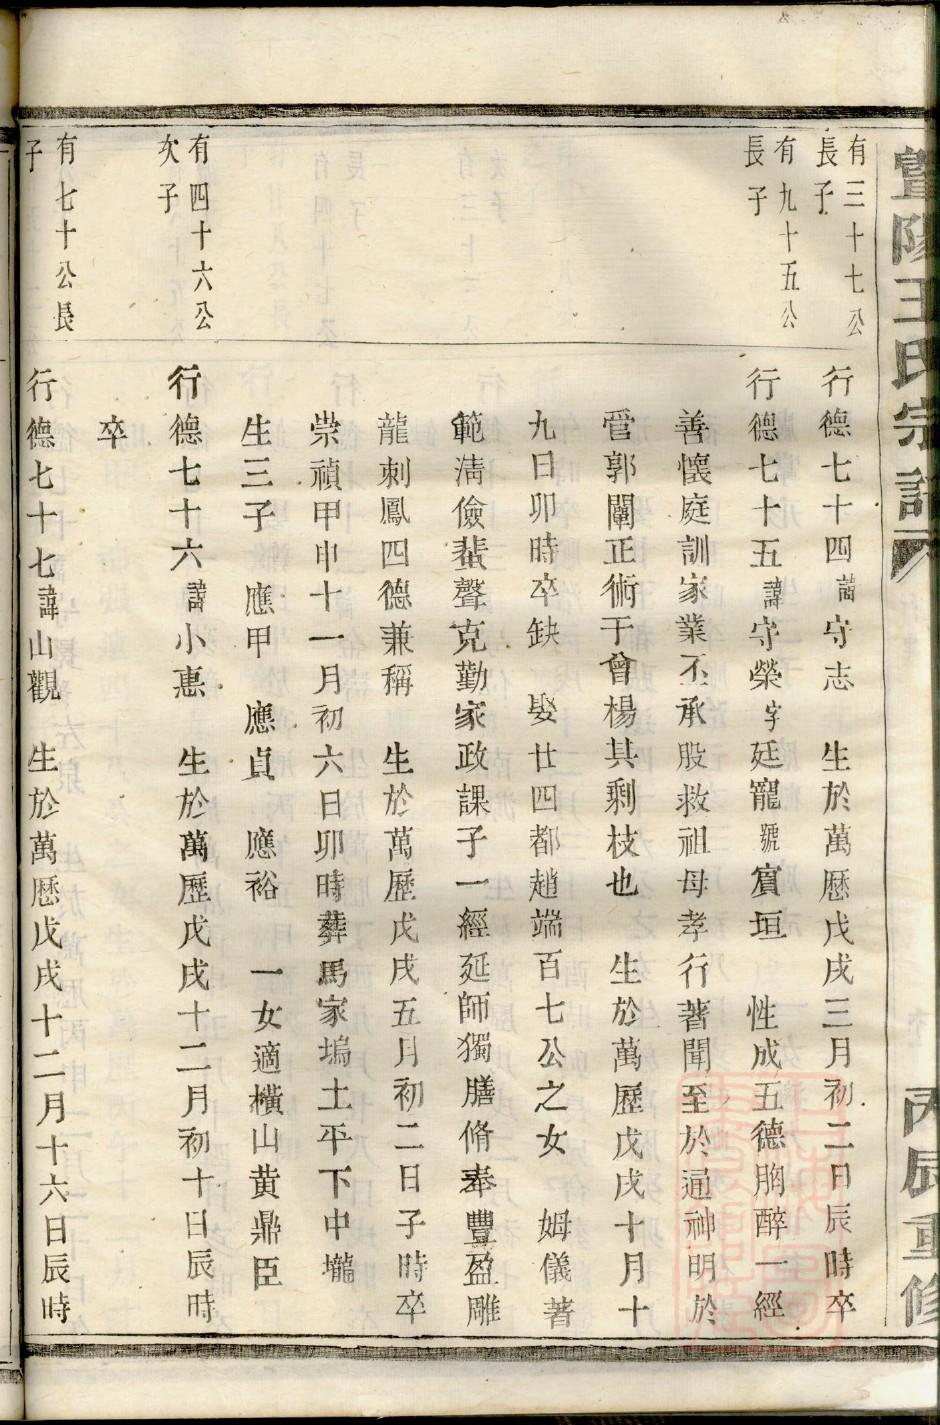 暨陽王氏宗譜
丙辰重修
有三十七公
長子
行德七十四諱守志 生於萬歷戊戌三月初二日辰時卒
有九十五公
長子
行德七十五諱守榮字廷寵號賓垣 性成五德胸醉一經
善懷庭訓家業丕承股救祖母孝行著聞至於通神明於
管郭闡正術于曾楊其剩枝也 生於萬歷戊戌十月十
九日卯時卒缺 娶廿四都趙端百七公之女 姆儀著
範淸儉蜚聲克勤家政課子一經延師獨膳脩奉豐盈雕
龍刺鳳四德兼稱 生於萬歷戊戌五月初二日子時卒
崇禎甲申十一月初六日卯時葬馬家塢土平下中壠
生三子 應甲 應貞 應裕 一女適橫山黄鼎臣
有四十六公
次子
行德七十六諱小惪 生於萬歷戊戌十二月初十日辰時
卒
有七十公長
子
行德七十七諱山觀 生於萬歷戊戌十二月十六日辰時